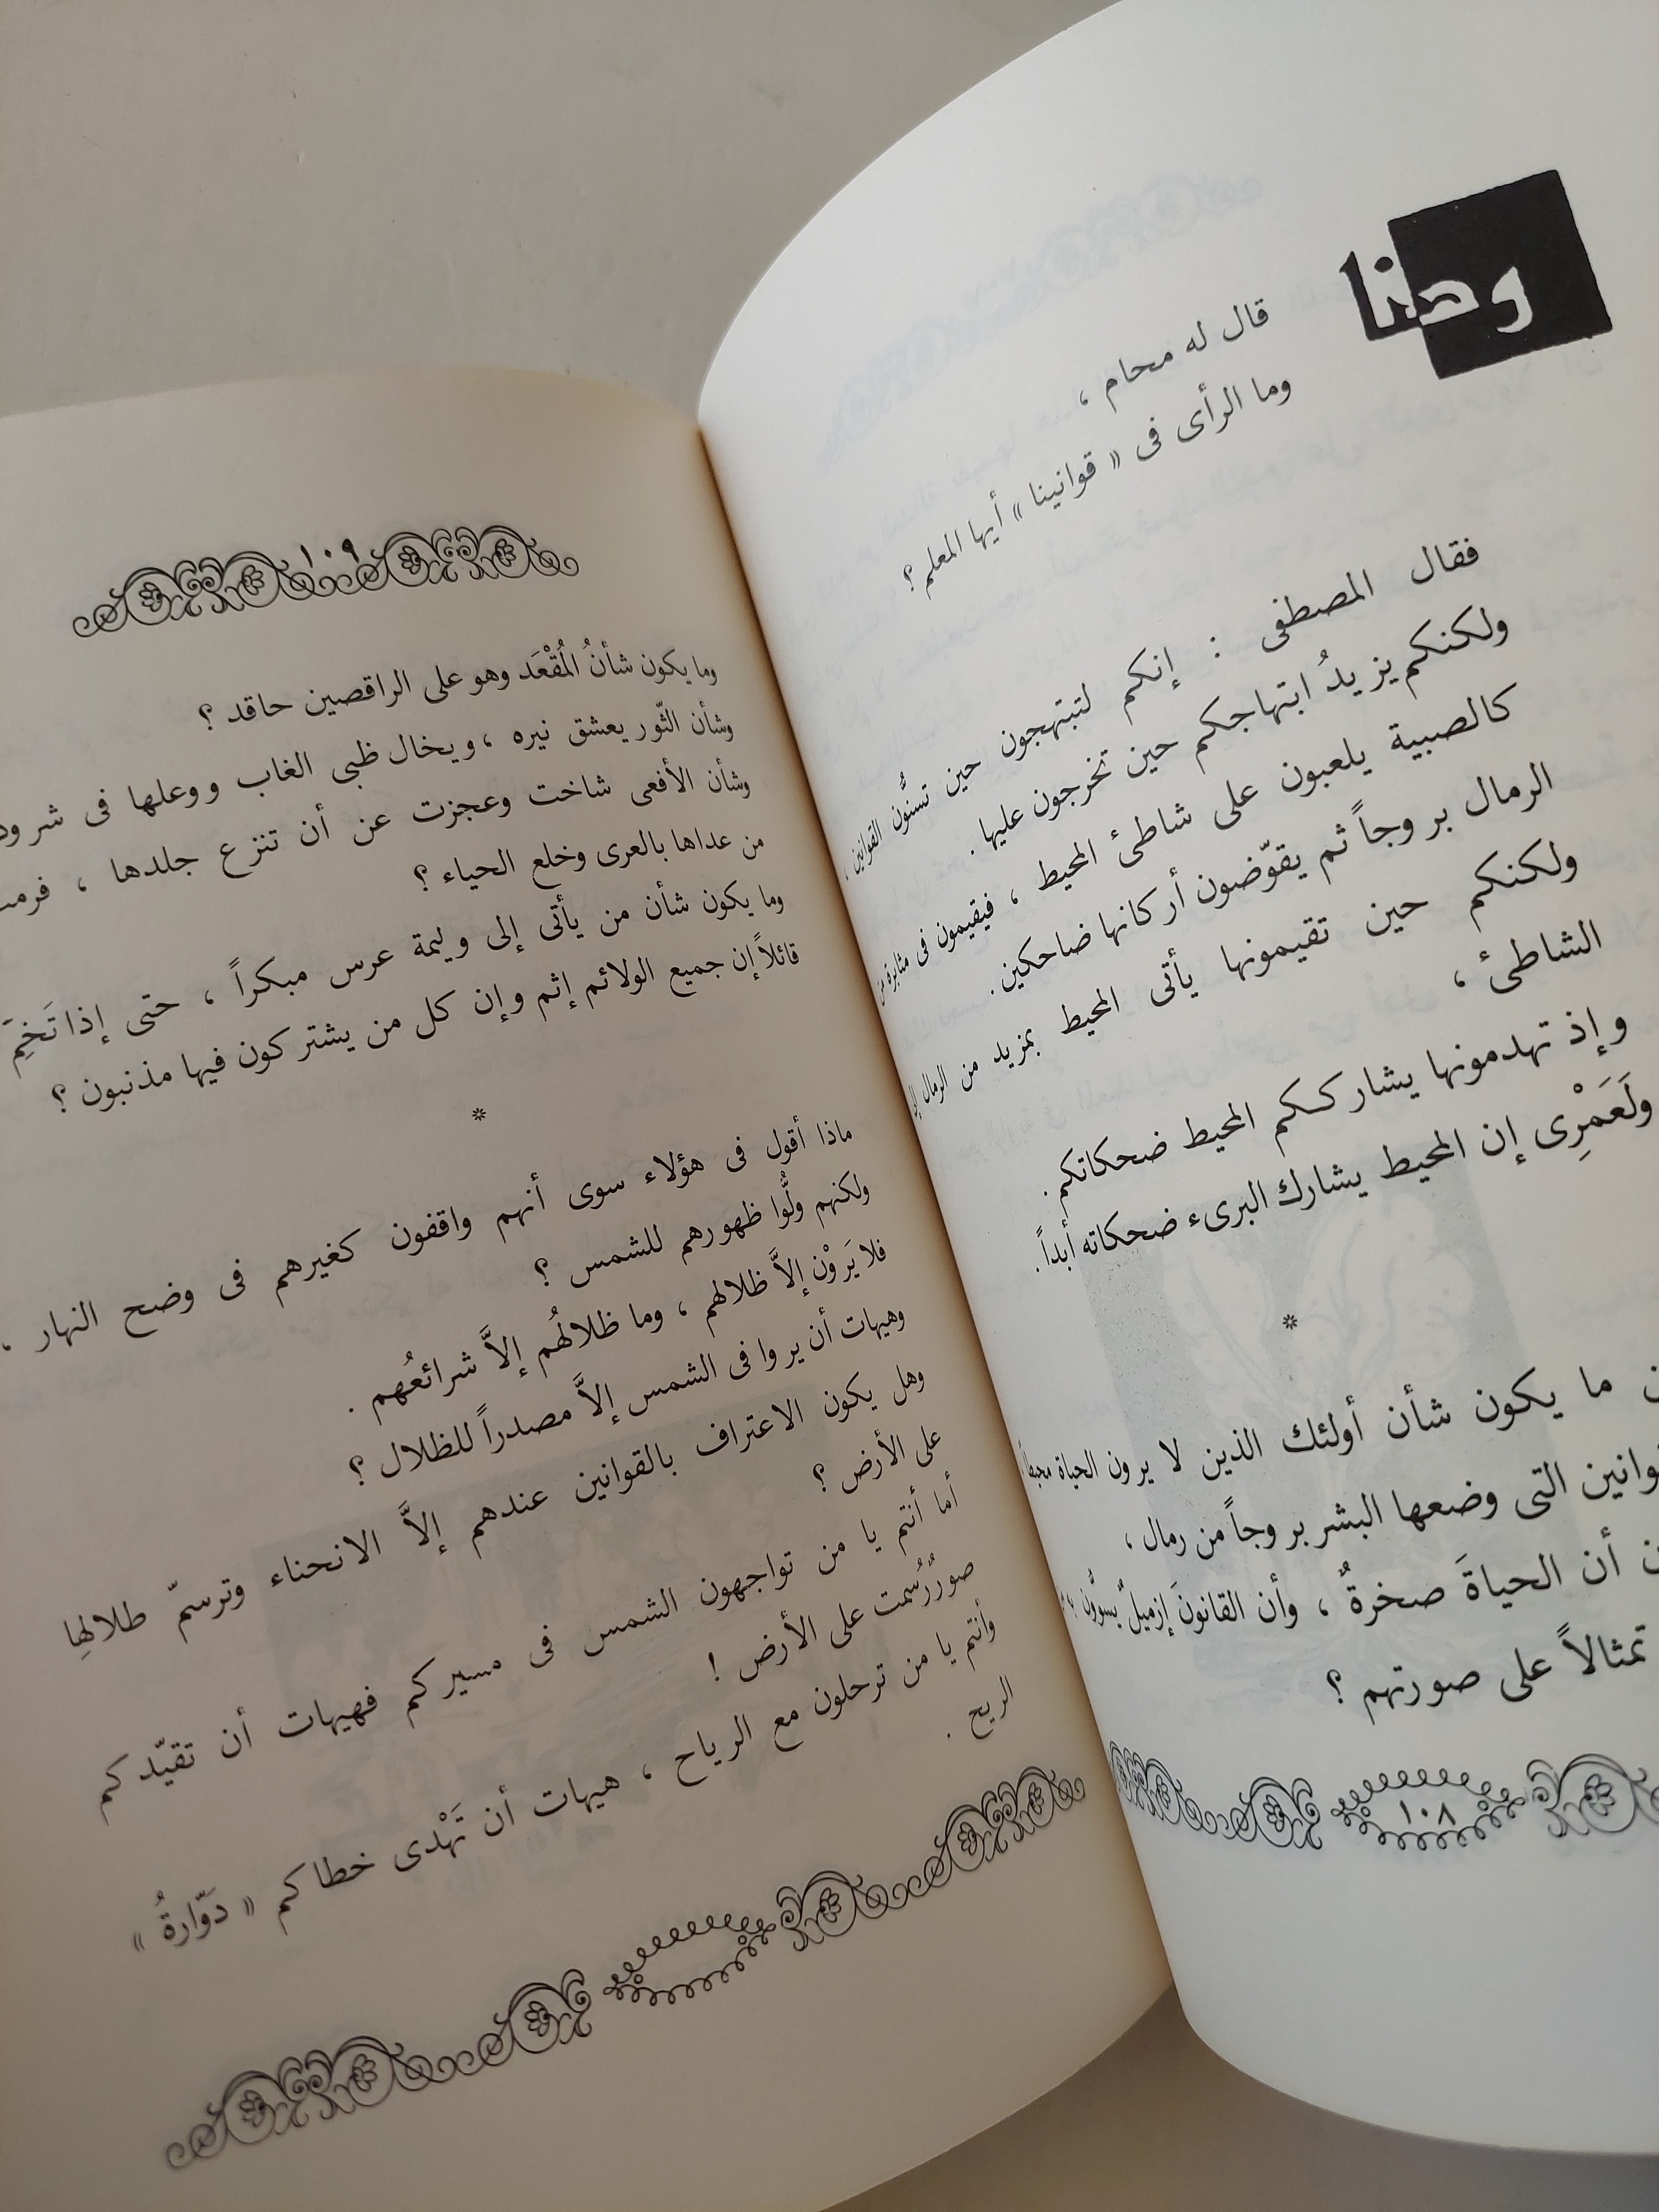 وهنا
قال له محام ،
وما الرأى فى « قوانينا » أيها المعلم ؟
فقال المصطفى : إنكم لتبتهجون حين تسنُّون القوانين ،
ولكنكم يزيدُ ابتهاجكم حين تخرجون عليها .
كالصبية يلعبون على شاطئ المحيط ، فيقيمون فى مثابرة من
الرمال بروجاً ثم يقوّضون أركانها ضاحكين .
ولكنكم حين تقيمونها يأتى المحيط بمزيد من الرمال إلى
الشاطئ ،
وإذ تهدمونها يشارككم المحيط ضحكاتكم .
ولَعَمْرِى إن المحيط يشارك البرىء ضحكاته أبداً .
*
ما يكون شأن أولئك الذين لا يرون الحياة محيطاً
التى وضعها البشر بروجاً من رمال ،
أن الحياةَ صخرةٌ ، وأن القانونَ إزميلٌ يسوُّون به
تمثالاً على صورتهم ؟
١٠٨
١٠٩
وما يكون شأنُ المُقْعَد وهو على الراقصين حاقد ؟
وشأن الثّور يعشق نيره ، ويخال ظبى الغاب ووعلها فى
وشأن الأفعى شاخت وعجزت عن أن تنزع جلدها ،
من عداها بالعرى وخلع الحياء ؟
وما يكون شأن من يأتى إلى وليمة عرس مبكراً ، حتى إذا تَخِمَ
قائلاً إن جميع الولائم إثم وإن كل من يشتركون فيها مذنبون ؟
*
ماذا أقول فى هؤلاء سوى أنهم واقفون كغيرهم فى وضح النهار ،
ولكنهم ولُّوا ظهورهم للشمس ؟
فلا يَرَوْن إلاَّ ظلالهم ، وما ظلالُهُم إلاَّ شرائعُهم .
وهيهات أن يروا فى الشمس إلاَّ مصدراً للظلال ؟
وهل يكون الاعتراف بالقوانين عندهم إلاَّ الانحناء وترسمّ طلالهِا
على الأرض ؟
أما أنتم يا من تواجهون الشمس فى مسيركم فهيهات أن تقيّدكم
صورٌ رُسمت على الأرض !
وأنتم يا من ترحلون مع الرياح ، هيهات أن تَهْدى خطاكم « دَوّارةُ »
الريح .